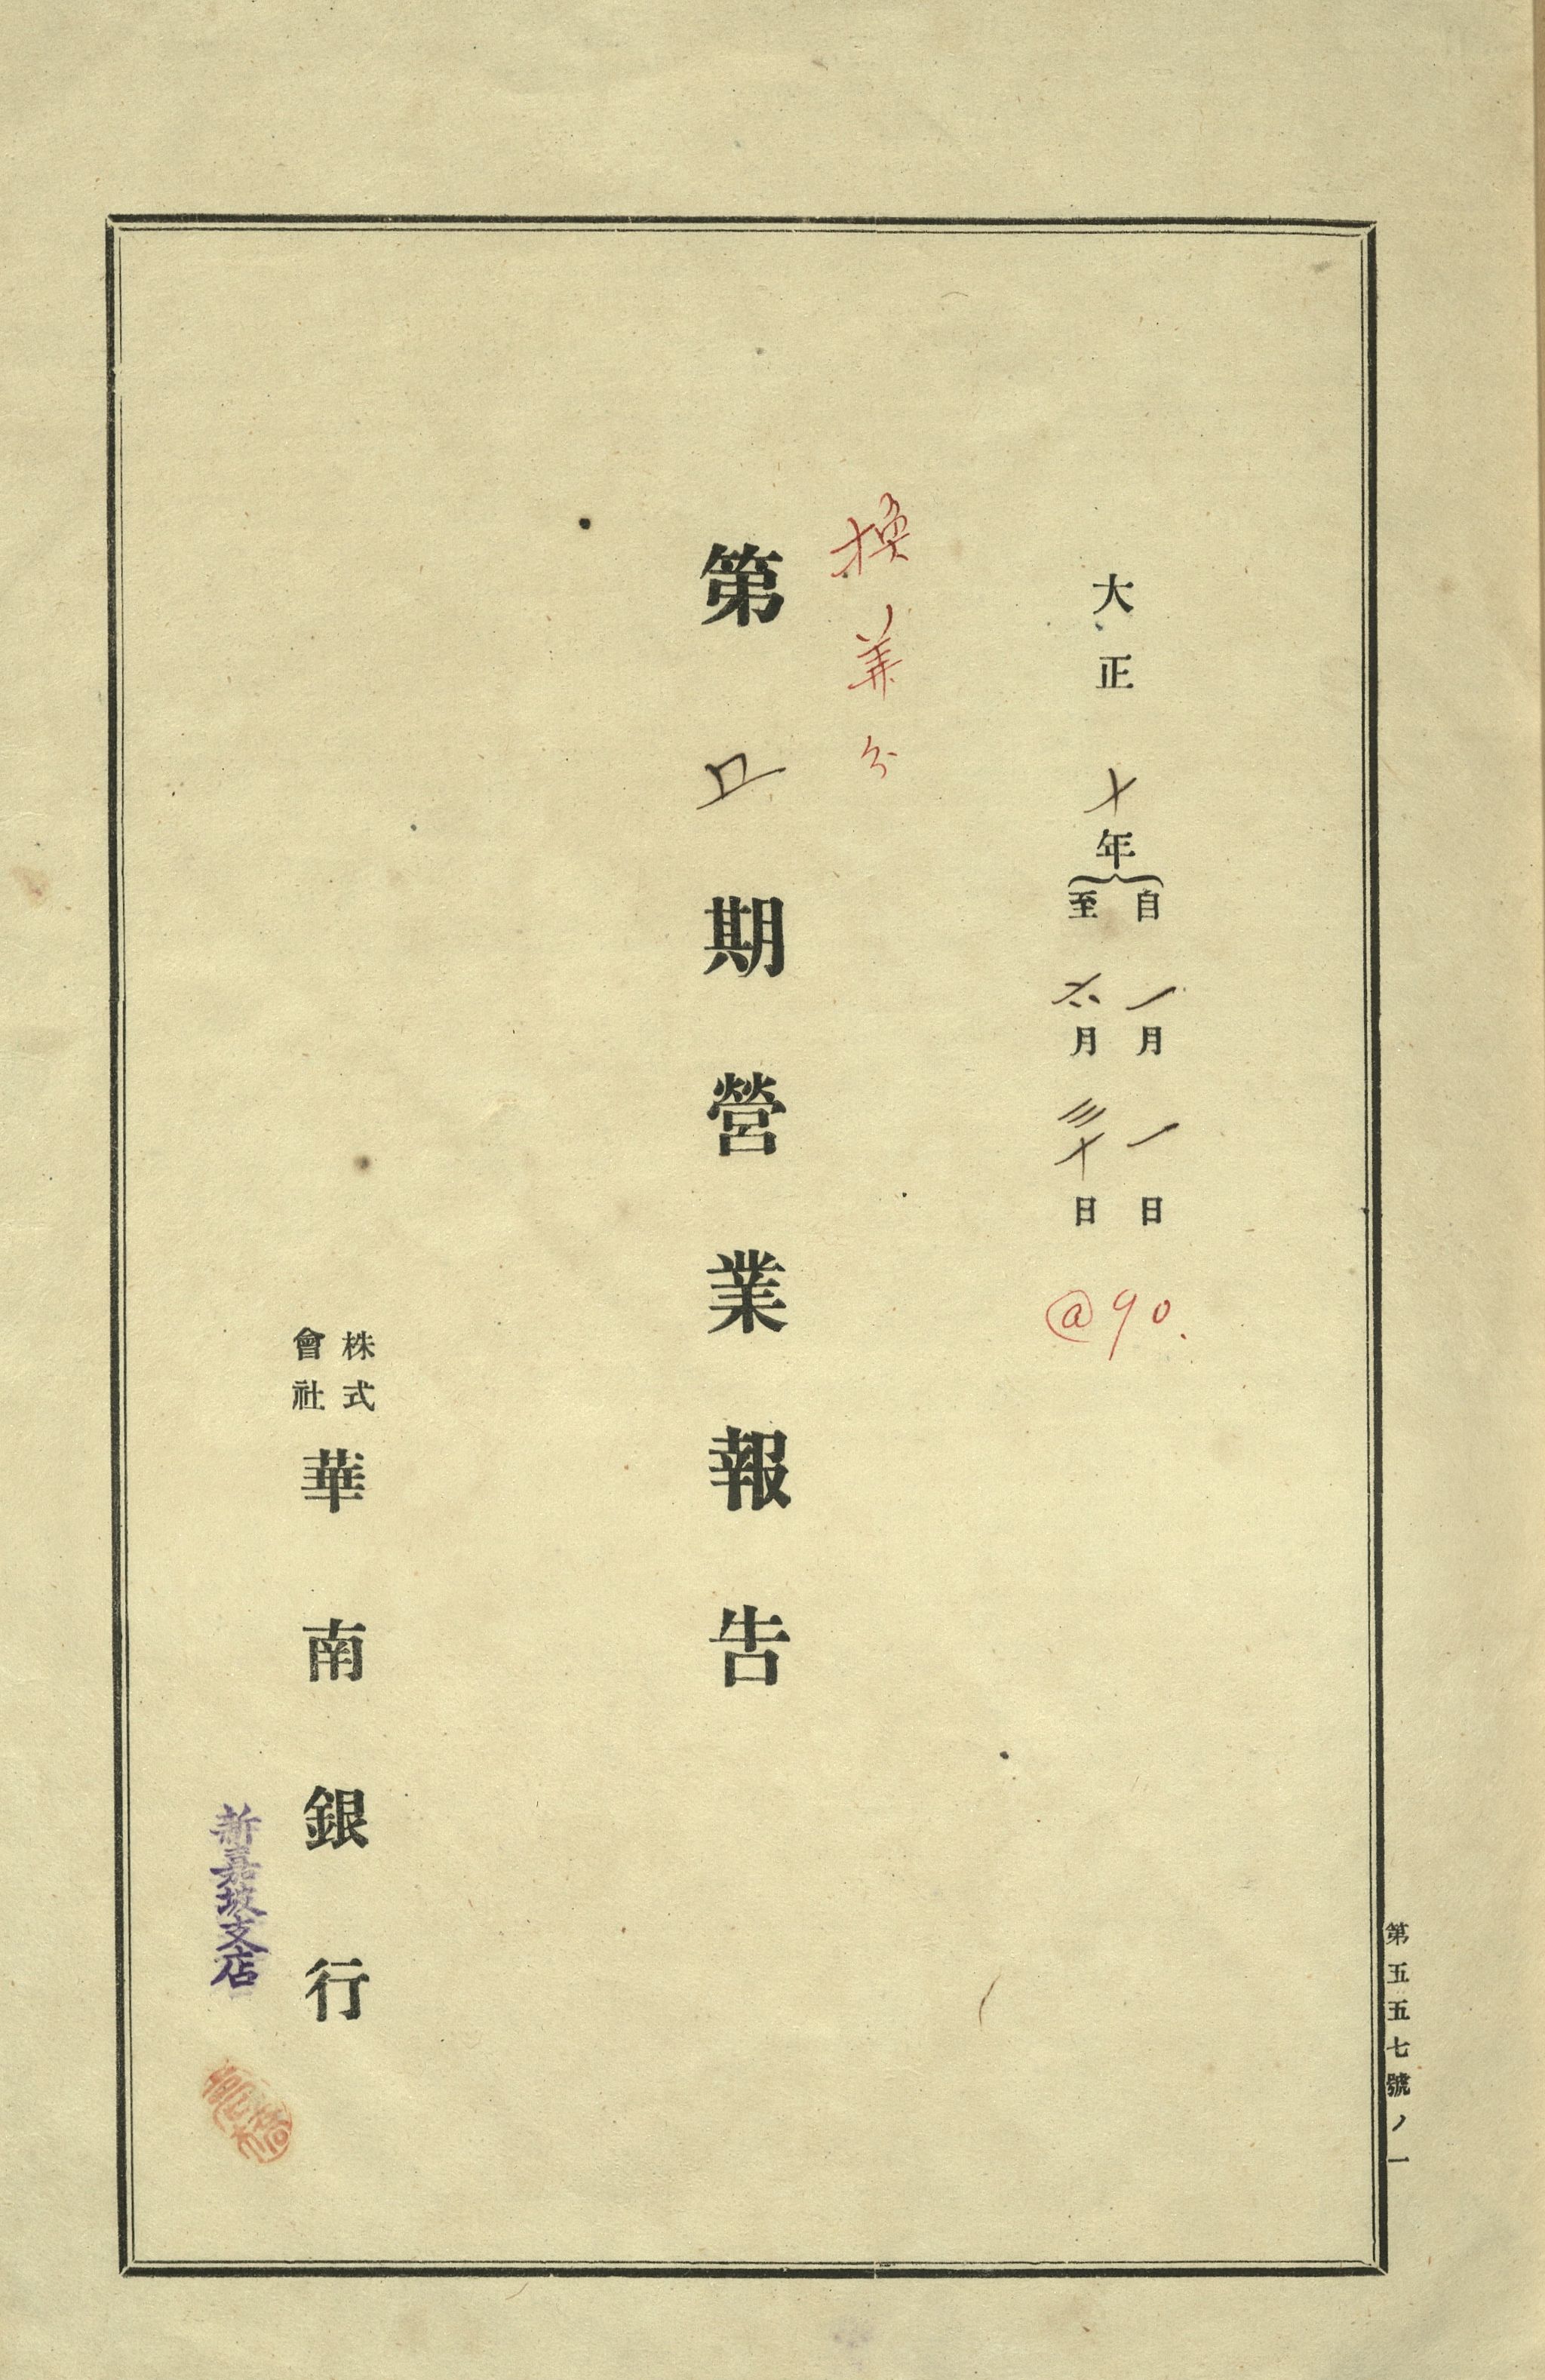 第五五七號ノ一
大正十年
自一月一日
至六月三十日
@90.
換算分
第五期營業報告
株式
會社
華南銀行
新嘉坡支店